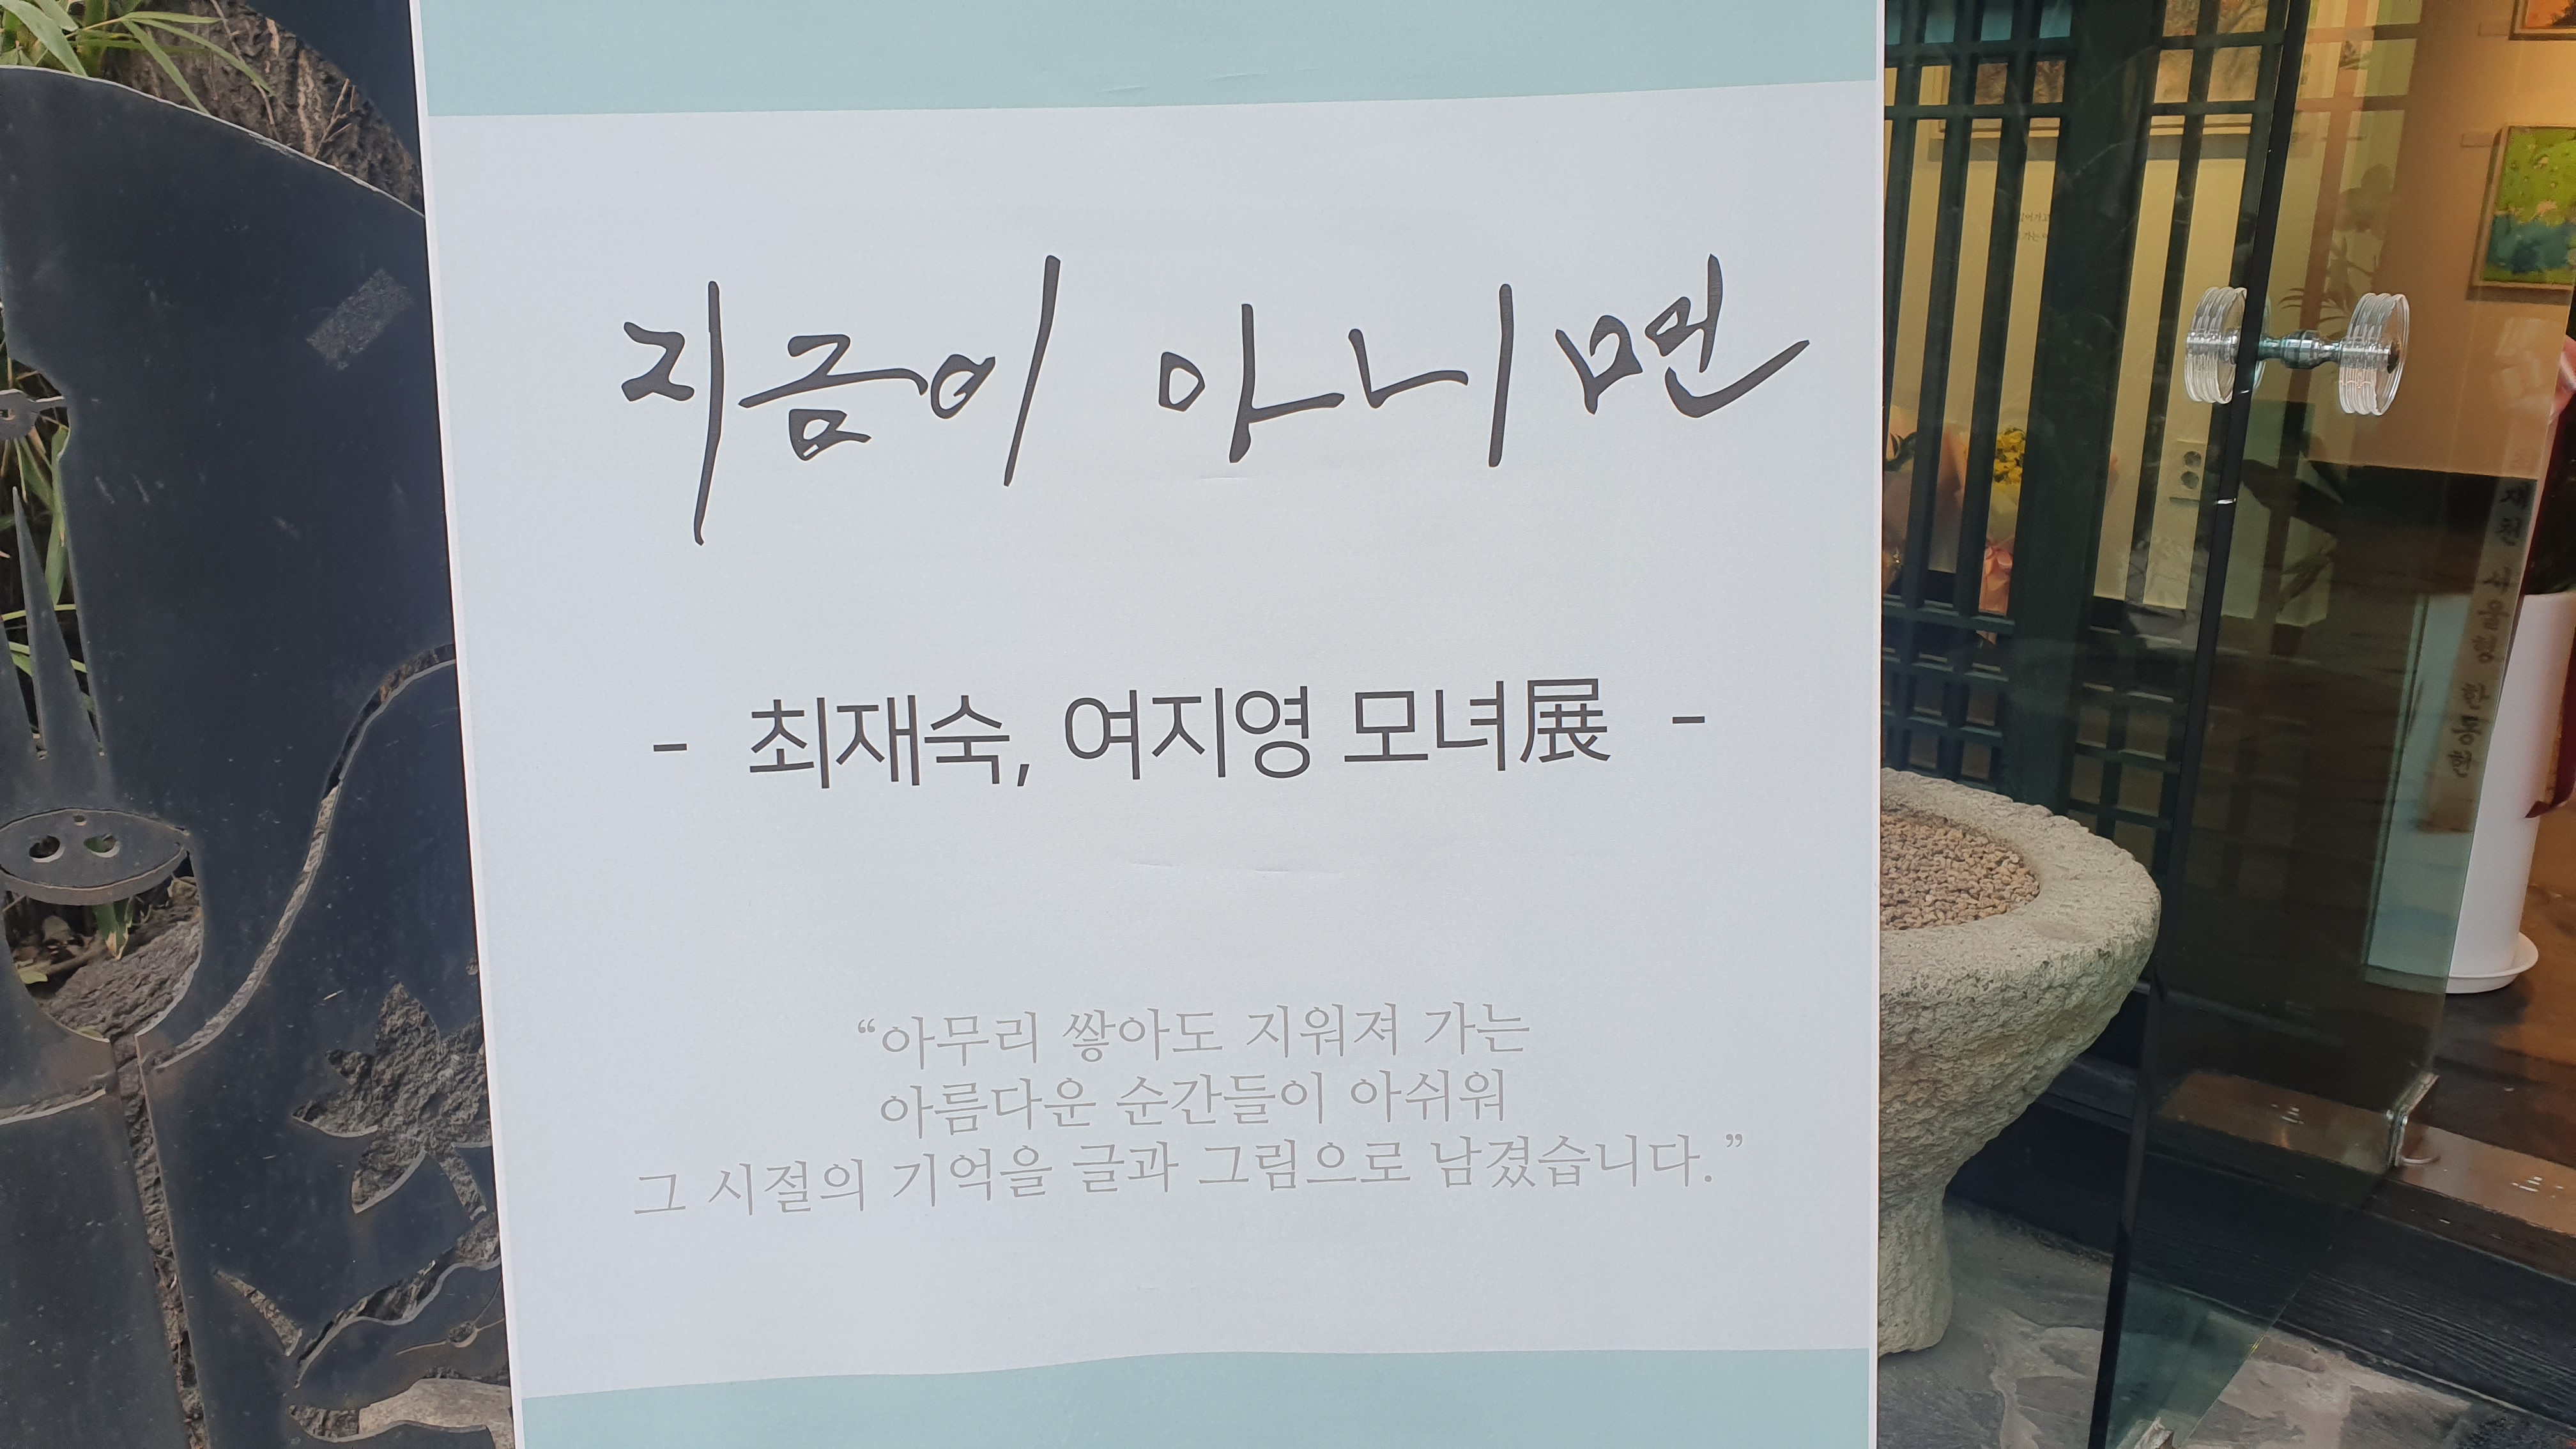 지금이 아니면
- 최재숙, 여지영 모녀展 -
“아무리 쌓아도 지워져 가는
아름다운 순간들이 아쉬워
그 시절의 기억을 글과 그림으로 남겼습니다.”